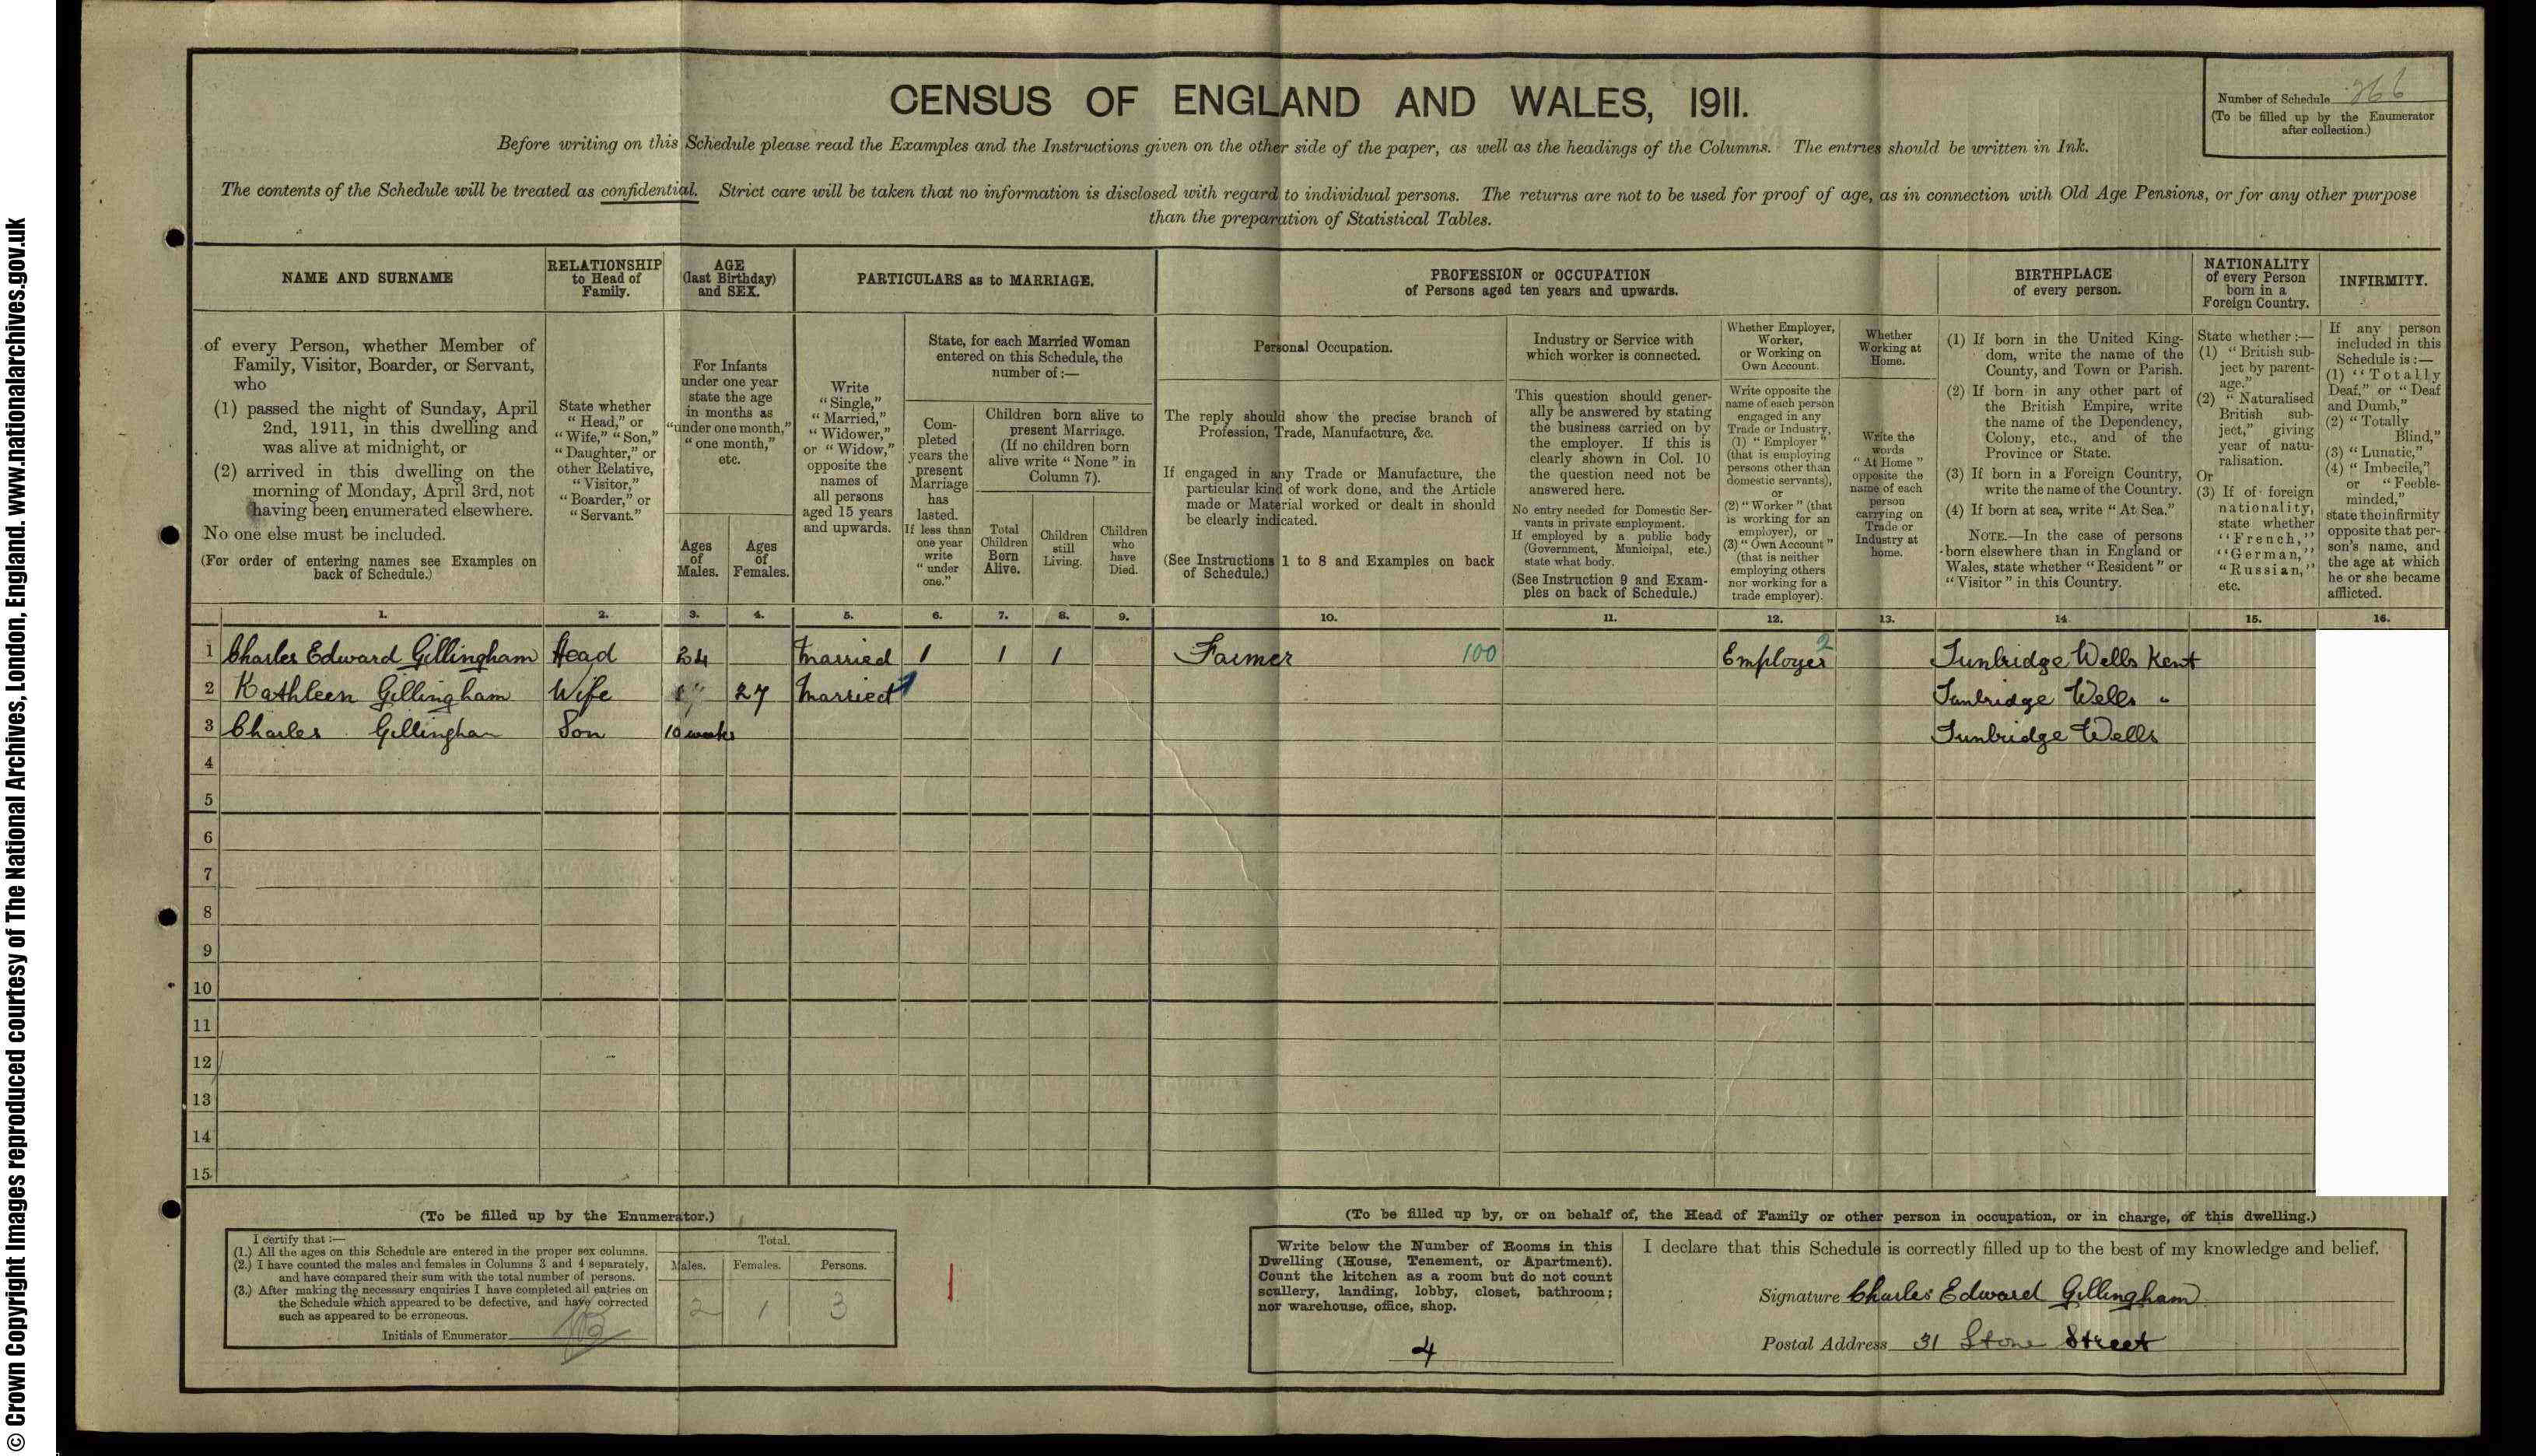 © Crown Copyright Images reproduced courtesy of The National Archives, London, England. www.nationalarchives.gov.uk
CENSUS OF ENGLAND AND WALES, 1911.
Number of Schedule 266
(To be filled up by the Enumerator
after collection.)
Before writing on this Schedule please read the Examples and the Instructions given on the other side of the paper, as well as the headings of the Columns. The entries should be written in Ink.
The contents of the Schedule will be treated as confidential. Strict care will be taken that no information is disclosed with regard to individual persons. The returns are not to be used for proof of age, as in connection with Old Age Pensions, or for any other purpose
than the preparation of Statistical Tables.
NAME AND SURNAME
RELATIONSHIP
to Head of
Family.
AGE
(last Birthday)
and SEX.
PARTICULARS as to MARRIAGE.
PROFESSION or OCCUPATION
of Persons aged ten years and upwards.
BIRTHPLACE
of every person.
NATIONALITY
of every Person
born in a
Foreign Country.
INFIRMITY.
of every Person, whether Member of
Family, Visitor, Boarder, or Servant,
who
(1) passed the night of Sunday, April
2nd, 1911, in this dwelling and
was alive at midnight, or
(2) arrived in this dwelling on the
morning of Monday, April 3rd, not
having been enumerated elsewhere.
No one else must be included.
(For order of entering names see Examples on
back of Schedule.)
State whether
"Head," or
"Wife," "Son,"
"Daughter," or
other Relative,
"Visitor,"
"Boarder," or
"Servant."
For Infants
under one year
state the age
in months as
"under one month,"
"one month,"
etc.
Ages
of
Males.
Ages
of
Females.
Write
"Single,"
"Married,"
"Widower,"
or "Widow,"
opposite the
names of
all persons
aged 15 years
and upwards.
State, for each Married Woman
entered on this Schedule, the
number of:—
Com-
pleted
years the
present
Marriage
has
lasted.
If less than
one year
write
"under
one."
Children born alive to
present Marriage.
(If no children born
alive write "None" in
Column 7).
Total
Children
Born
Alive.
Children
still
Living.
Children
who
have
Died.
Personal Occupation.
The reply should show the precise branch of
Profession, Trade, Manufacture, &c.
If engaged in any Trade or Manufacture, the
particular kind of work done, and the Article
made or Material worked or dealt in should
be clearly indicated.
(See Instructions 1 to 8 and Examples on back
of Schedule.)
Industry or Service with
which worker is connected.
This question should gener-
ally be answered by stating
the business carried on by
the employer. If this is
clearly shown in Col. 10
the question need not be
answered here.
No entry needed for Domestic Ser-
vants in private employment.
If employed by a public body
(Government, Municipal, etc.)
state what body.
(See Instruction 9 and Exam-
ples on back of Schedule.)
Whether Employer,
Worker,
or Working on
Own Account.
Write opposite the
name of each person
engaged in any
Trade or Industry,
(1) "Employer"
(that is employing
persons other than
domestic servants),
or
(2) "Worker" (that
is working for an
employer), or
(3) "Own Account"
(that is neither
employing others
nor working for a
trade employer).
Whether
Working at
Home.
Write the
words
"At Home"
opposite the
name of each
person
carrying on
Trade or
Industry at
home.
(1) If born in the United King-
dom, write the name of the
County, and Town or Parish.
(2) If born in any other part of
the British Empire, write
the name of the Dependency,
Colony, etc., and of the
Province or State.
(3) If born in a Foreign Country,
write the name of the Country.
(4) If born at sea, write "At Sea."
NOTE.—In the case of persons
born elsewhere than in England or
Wales, state whether "Resident" or
"Visitor" in this Country.
State whether:—
(1) "British sub-
ject by parent-
age."
(2) "Naturalised
British sub-
ject," giving
year of natu-
ralisation.
Or
(3) If of foreign
nationality,
state whether
"French,"
"German,"
"Russian,"
etc.
If any person
included in this
Schedule is:—
(1) "Totally
Deaf," or "Deaf
and Dumb,"
(2) "Totally
Blind,"
(3) "Lunatic,"
(4) "Imbecile,"
or "Feeble-
minded,"
state the infirmity
opposite that per-
son's name, and
the age at which
he or she became
afflicted.
1. 2. 3. 4. 5. 6. 7. 8. 9. 10. 11. 12. 13. 14 15. 16.
1 Charles Edward Gillingham Head 24 Married 1 1 1 Farmer 100 Employer 2 Tunbridge Wells Kent
2 Kathleen Gillingham Wife 27 Married Tunbridge Wells "
3 Charles Gillingham Son 10 weeks Tunbridge Wells
4
5
6
7
8
9
10
11
12
13
14
15
(To be filled up by the Enumerator.)
I certify that:—
(1.) All the ages on this Schedule are entered in the proper sex columns.
(2.) I have counted the males and females in Columns 3 and 4 separately,
and have compared their sum with the total number of persons.
(3.) After making the necessary enquiries I have completed all entries on
the Schedule which appeared to be defective, and have corrected
such as appeared to be erroneous.
Initials of Enumerator
Total.
Males. Females. Persons.
2 1 3
1
(To be filled up by, or on behalf of, the Head of Family or other person in occupation, or in charge, of this dwelling.)
Write below the Number of Rooms in this
Dwelling (House, Tenement, or Apartment).
Count the kitchen as a room but do not count
scullery, landing, lobby, closet, bathroom;
nor warehouse, office, shop.
4
I declare that this Schedule is correctly filled up to the best of my knowledge and belief.
Signature Charles Edward Gillingham
Postal Address 31 Stone Street